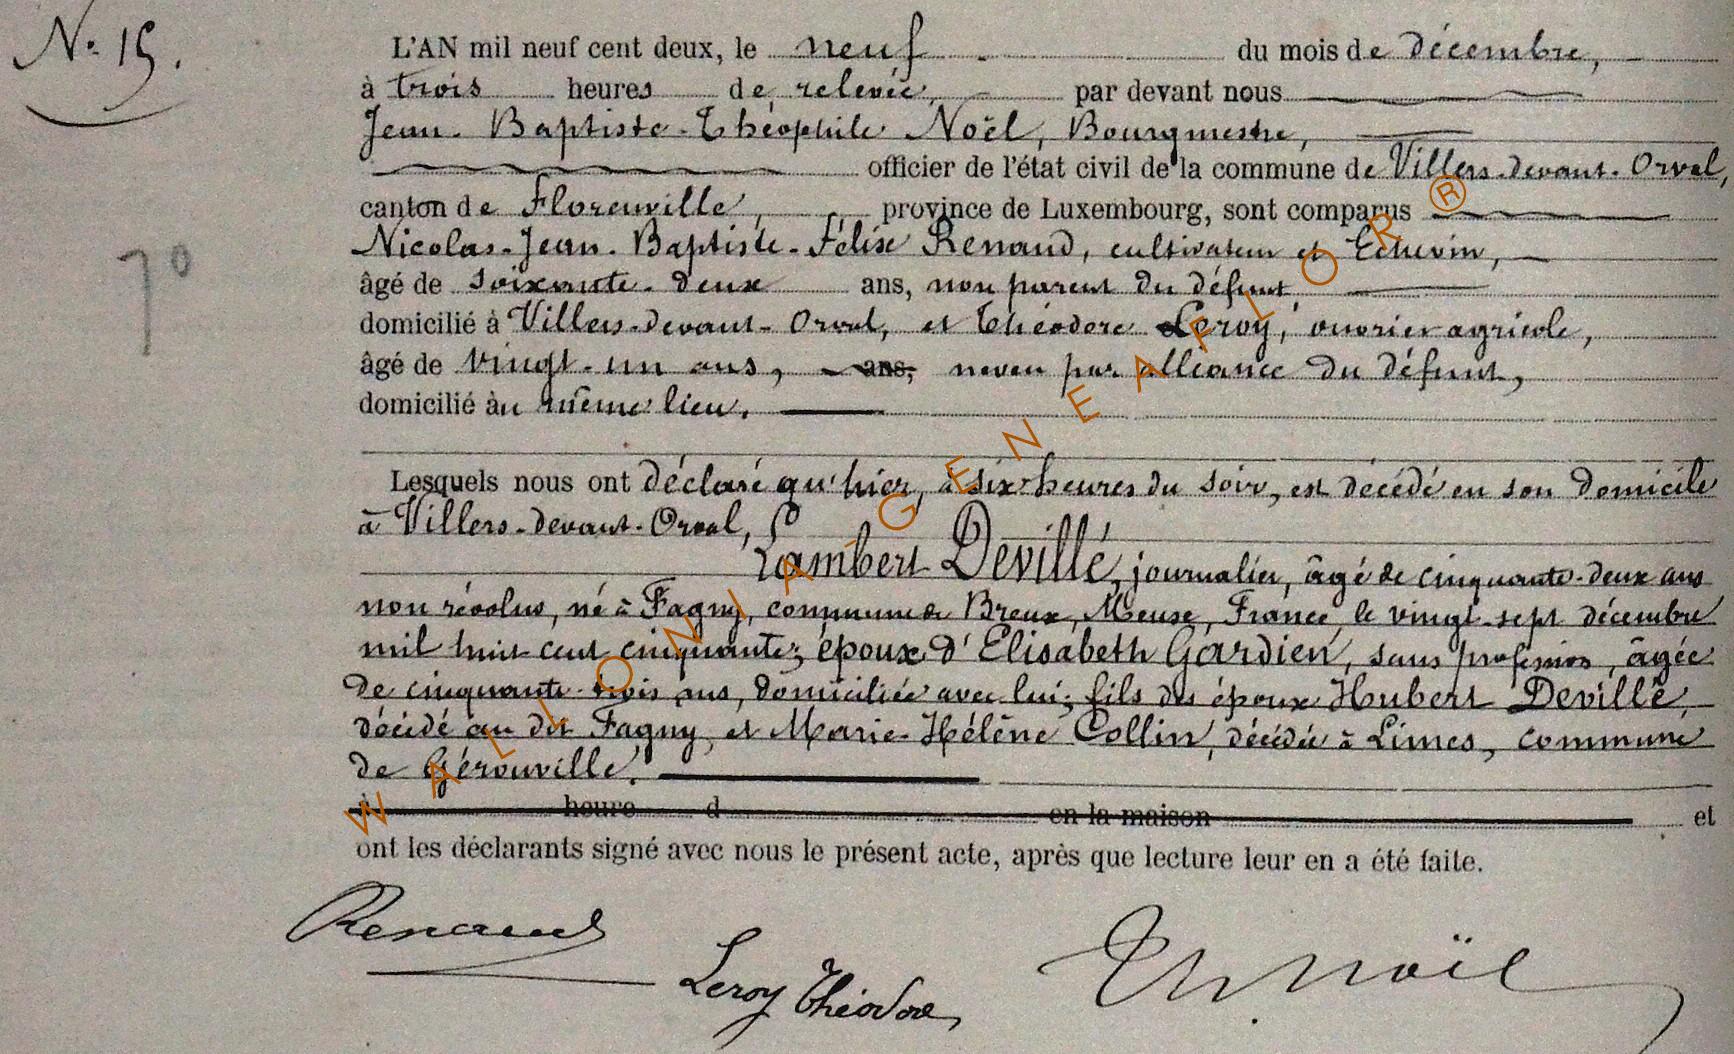 N° 15.
7°
L'AN mil neuf cent deux, le neuf du mois de décembre,
à trois heures de relevée, par devant nous
Jean-Baptiste-Théophile Noël, Bourgmestre,
officier de l'état civil de la commune de Villers-devant-Orval,
canton de Florenville, province de Luxembourg, sont comparus
Nicolas-Jean-Baptiste-Félix Renaud, cultivateur et Echevin,
âgé de soixante-deux ans, non parent du défunt,
domicilié à Villers-devant-Orval, et Théodore Leroy, ouvrier agricole,
âgé de vingt-un ans, ans, neveu par alliance du défunt,
domicilié au même lieu.
Lesquels nous ont déclaré qu'hier, à six heures du soir, est décédé en son domicile
à Villers-devant-Orval,
Lambert Devillé, journalier, âgé de cinquante-deux ans
non révolus, né à Fagny, commune de Breux, Meuse, France, le vingt-sept décembre
mil huit cent cinquante; époux d'Elisabeth Gardien, sans profession, âgée
de cinquante-trois ans, domiciliée avec lui; fils des époux Hubert Devillé,
décédé au dit Fagny, et Marie-Hélène Collin, décédée à Limes, commune
de Gérouville.
à heure d en la maison et
ont les déclarants signé avec nous le présent acte, après que lecture leur en a été faite.
Renaud
Leroy Théodore
Th Noël
WALLONIA-GENEAFLOR®